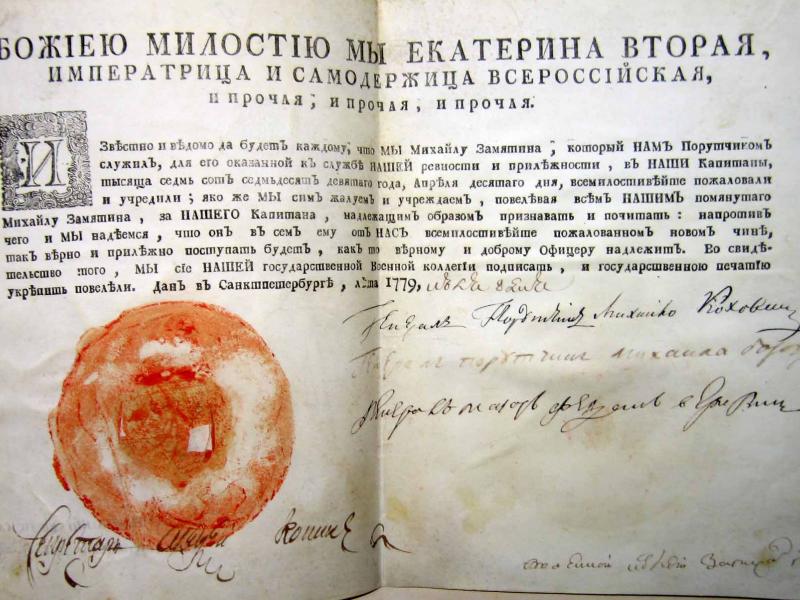 БОЖІЕЮ МИЛОСТІЮ МЫ ЕКАТЕРИНА ВТОРАЯ,
ИМПЕРАТРИЦА И САМОДЕРЖИЦА ВСЕРОССІЙСКАЯ,
и прочая; и прочая, и прочая.
ИЗвѣстно и вѣдомо да будетъ каждому, что МЫ Михайлу Замятина; который НАМЪ Порутчикомъ
служилъ, для его оказанной къ службѣ НАШЕЙ ревности и прилѣжности, въ НАШИ Капитаны,
тысяща седмь сотъ седмьдесятъ девятаго года, Апрѣля десятаго дня, всемилостивѣйте пожаловали
и учредили; яко же МЫ симъ жалуемъ и учреждаемъ, повелѣвая всѣмъ НАШИМЪ помянутаго
Михайлу Замятина, за НАШЕГО Капитана, надлежащимъ образомъ признавать и почитать: напротивъ
чего и МЫ надѣемся, что онъ въ семъ ему отъ НАСЪ всемилостивѣйте пожалованномъ новомъ чинѣ,
такъ вѣрно и прилѣжно поступать будетъ, какъ то вѣрному и доброму Офицеру надлежитъ. Во свидѣ-
тельство того, МЫ сіе НАШЕЙ государственной Военной коллегіи подписать, и государственною печатію
укрѣпить повелѣли. Данъ въ Санктпетербургѣ, лѣта 1779,
Генералъ Порутчикъ Михайло
Генералъ порутчикъ михаила
Генералъ маіоръ
Секретарь